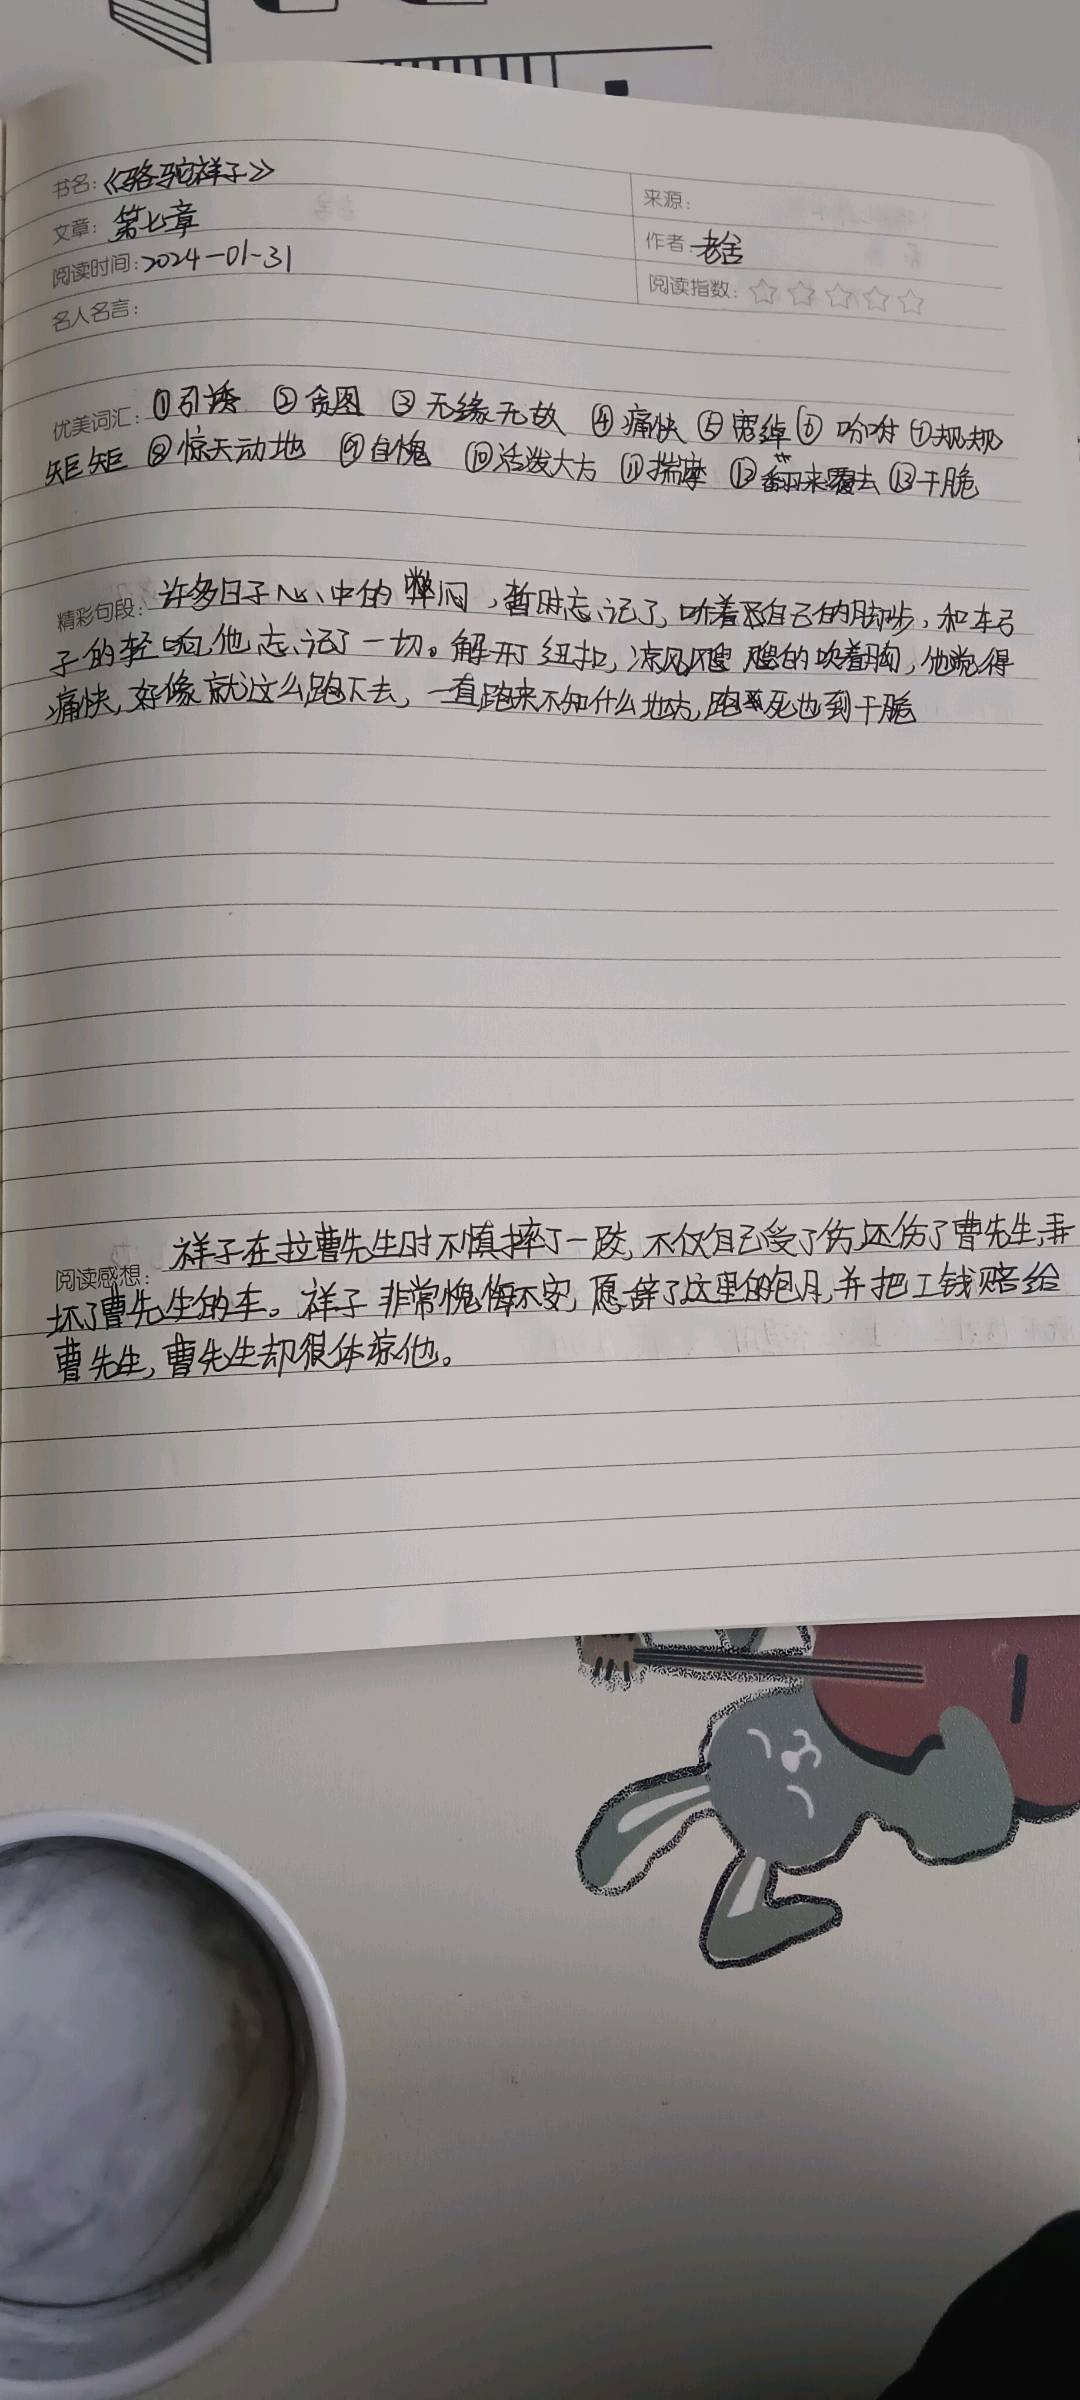 书名：《骆驼祥子》
来源：
文章：第七章
作者：老舍
阅读时间：2024-01-31
阅读指数：☆☆☆☆☆
名人名言：
优美词汇：①引诱 ②贪图 ③无缘无故 ④痛快 ⑤宽绰 ⑥吩咐 ⑦规规
矩矩 ⑧惊天动地 ⑨自愧 ⑩活泼大方 ⑪揣摩 ⑫翻来覆去 ⑬干脆
精彩句段：许多日子心中的憋闷，暂时忘记了，听着自己的脚步，和车弓
子的轻响，他忘记了一切。解开了纽扣，凉风飕飕的吹着胸，他觉得
痛快，好像就这么跑下去，一直跑来不知什么地方，跑死也到干脆
阅读感想：祥子在拉曹先生时不慎摔了一跤，不仅自己受了伤，还伤了曹先生，弄
坏了曹先生的车。祥子非常愧悔不安，愿辞了这里的包月，并把工钱赔给
曹先生，曹先生却很体谅他。